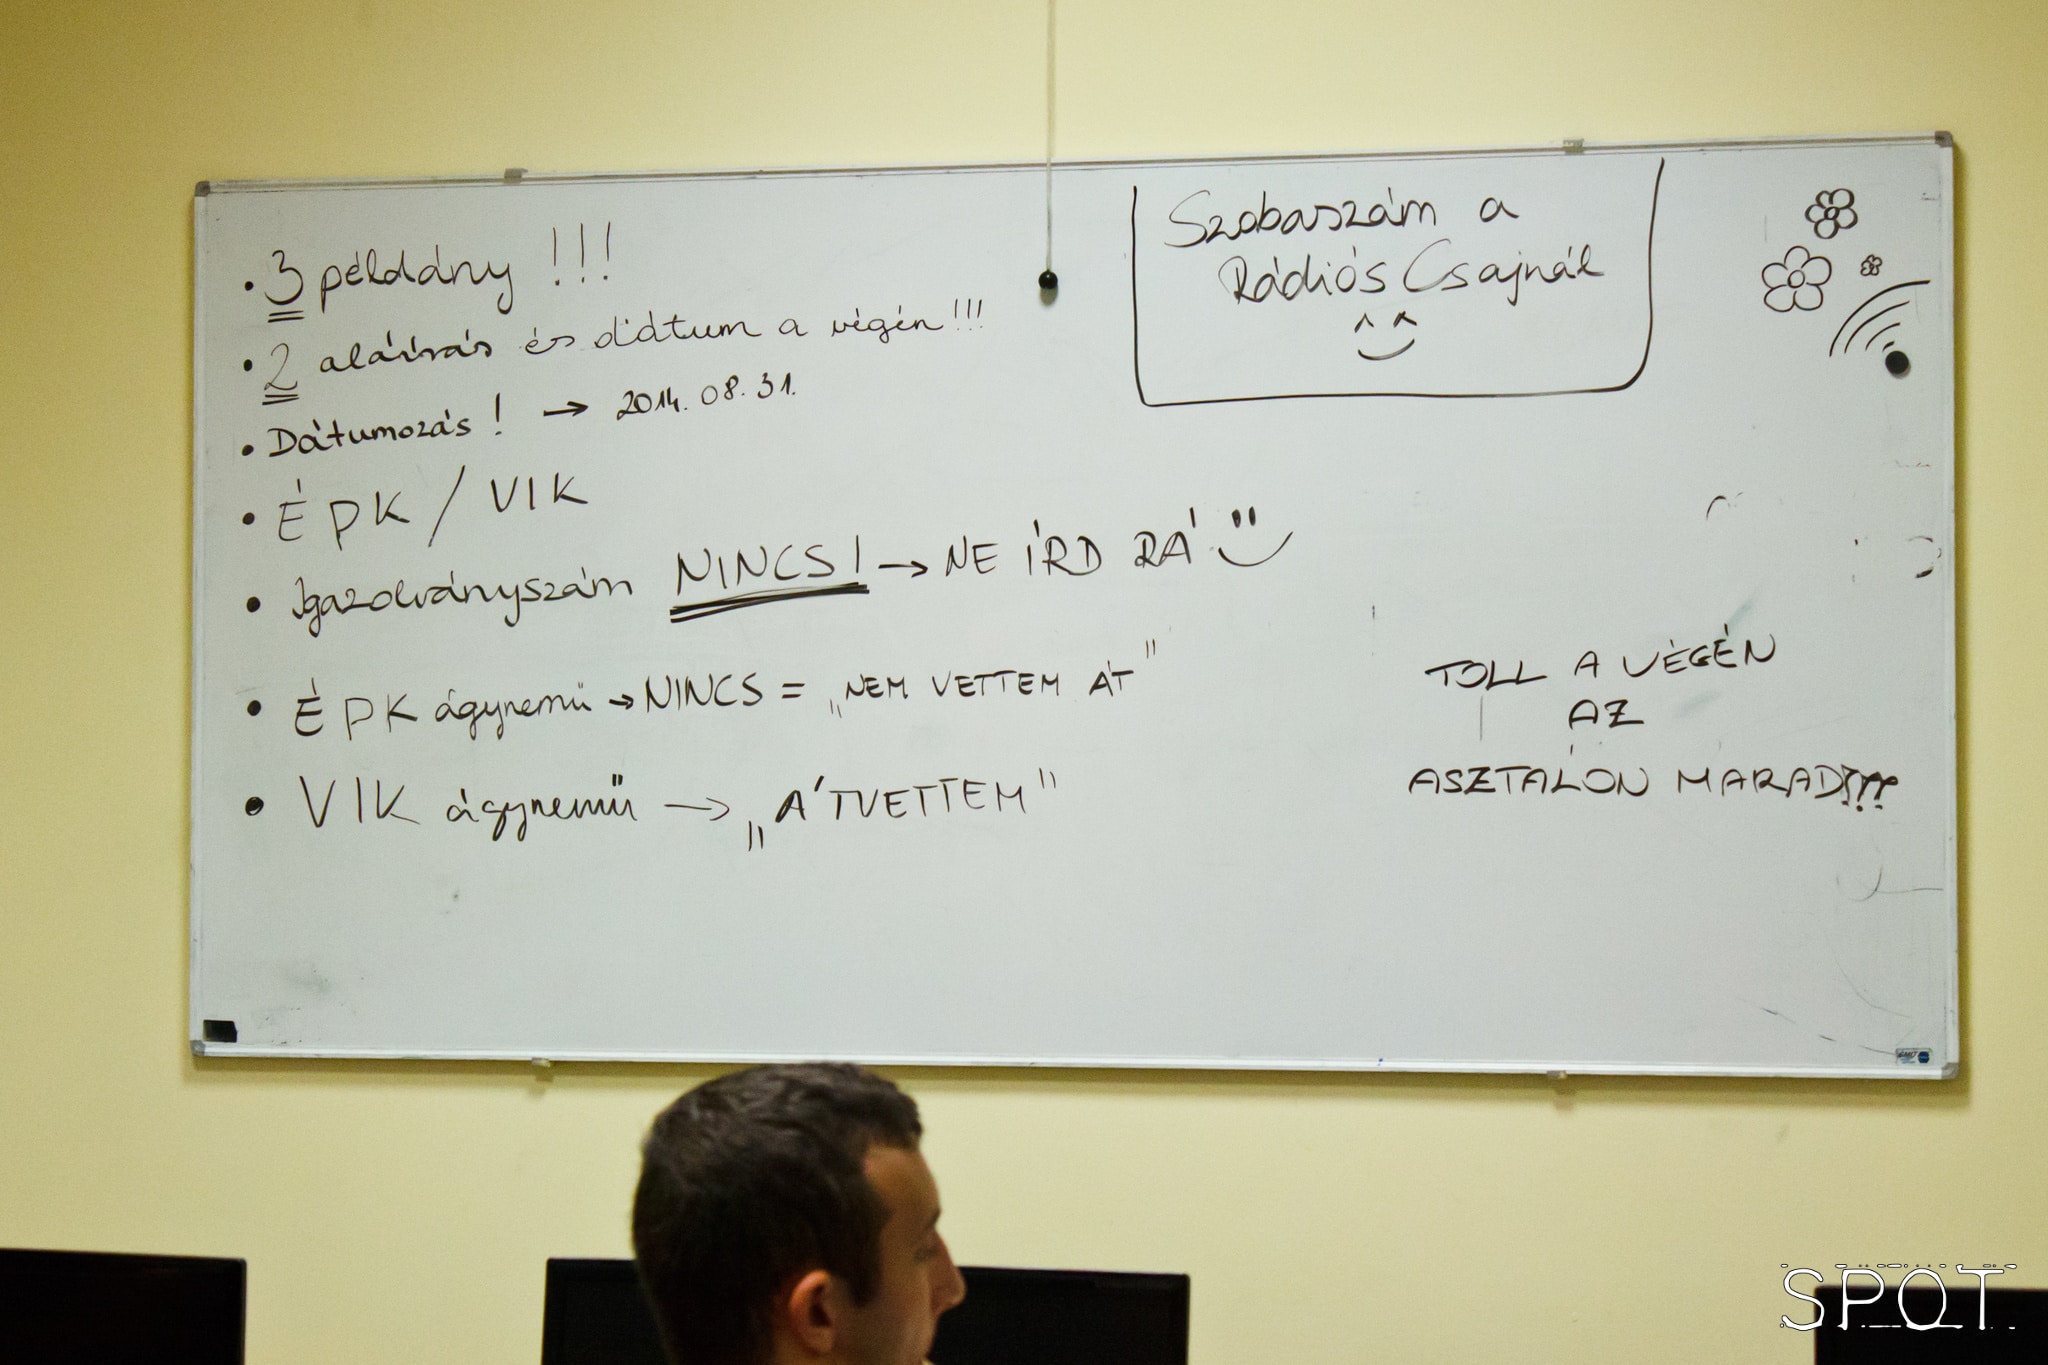 • 3 példány !!!
• 2 aláírás és dátum a végén!!!
• Dátumozás! → 2014.08.31.
• ÉPK / VIK
• Igazolványszám NINCS! → NE ÍRD RÁ
• ÉPK ágynemű → NINCS = „NEM VETTEM ÁT"
• VIK ágynemű → „ÁTVETTEM"
Szobaszám a
Rádiós Csajnál
^^
TOLL A VÉGÉN
AZ
ASZTALON MARAD!!!
SPOT